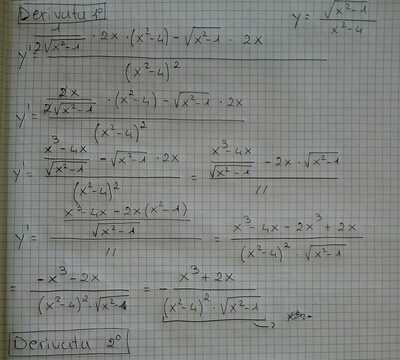 Derivata 1° y = √(x²-1) / (x²-4)
y' = (1/(2√(x²-1)) · 2x · (x²-4) - √(x²-1) · 2x) / (x²-4)²
y' = (2x/(2√(x²-1)) · (x²-4) - √(x²-1) · 2x) / (x²-4)²
y' = ((x³-4x)/√(x²-1) - √(x²-1) · 2x) / (x²-4)² = ((x³-4x)/√(x²-1) - 2x · √(x²-1)) / //
y' = ((x³-4x-2x(x²-1))/√(x²-1)) / // = (x³-4x-2x³+2x) / ((x²-4)² · √(x²-1))
= (-x³-2x) / ((x²-4)² · √(x²-1)) = - (x³+2x) / ((x²-4)² · √(x²-1))
Derivata 2°